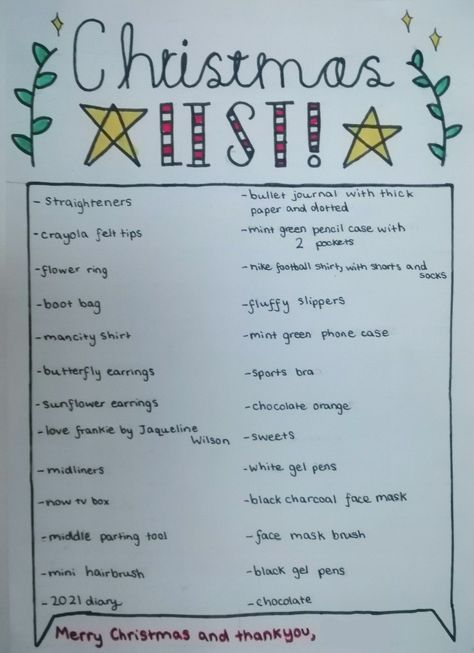 Christmas
LIST!
- Straighteners
- crayola felt tips
- flower ring
- boot bag
- mancity shirt
- butterfly earrings
- sunflower earrings
- love frankie by Jaqueline
Wilson
- midliners
- now tv box
- middle parting tool
- mini hairbrush
- 2021 diary
- bullet journal with thick
paper and dotted
- mint green pencil case with
2 pockets
- nike football shirt, with shorts and
socks
- fluffy slippers
- mint green phone case
- sports bra
- chocolate orange
- sweets
- white gel pens
- black charcoal face mask
- face mask brush
- black gel pens
- chocolate
Merry Christmas and thankyou,